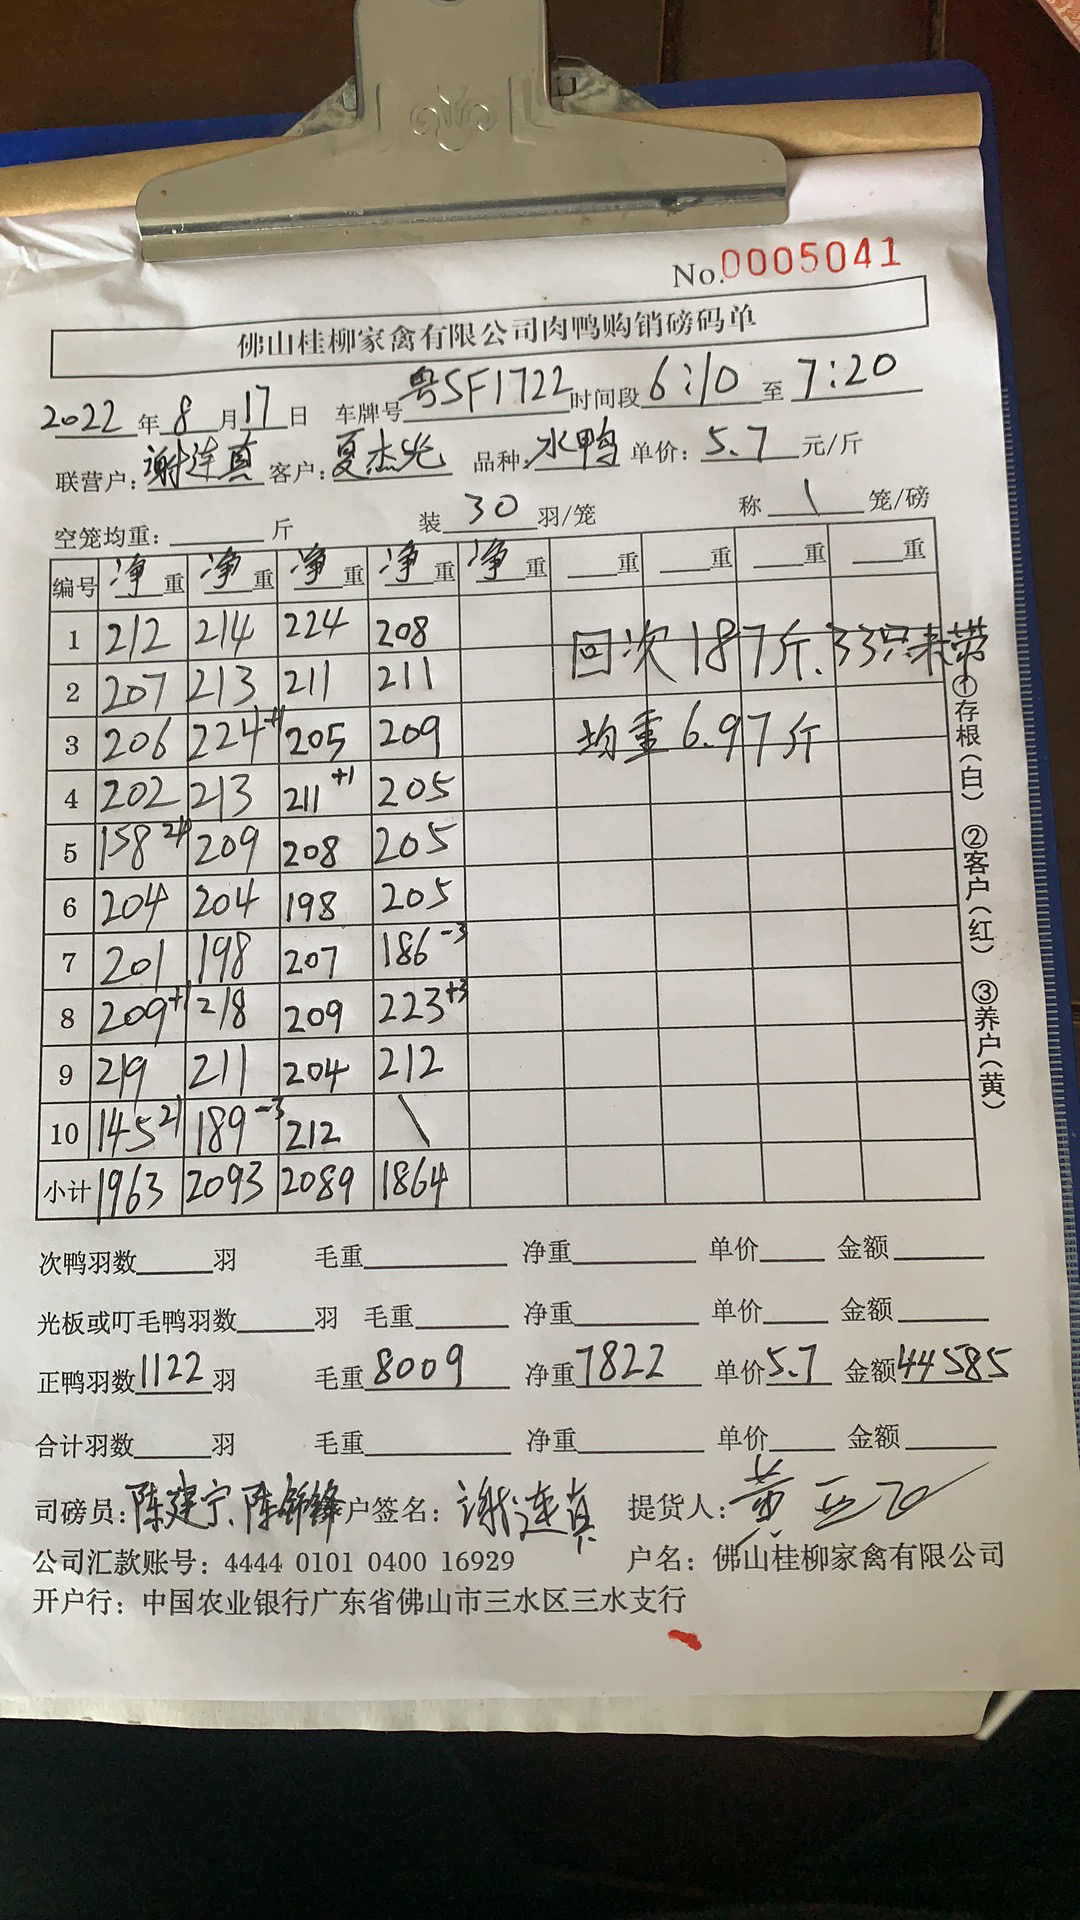 No.0005041
佛山桂柳家禽有限公司肉鸭购销磅码单
2022年8月17日 车牌号粤SF1722时间段6:10至7:20
联营户:谢连真 客户:夏杰光 品种:水鸭 单价:5.7元/斤
空笼均重:____斤 装30羽/笼 称\笼/磅
编号 净重 净重 净重 净重 净重 __重 __重 __重 __重
1 212 214 224 208
回次187斤.33只未带
2 207 213 211 211
3 206 224+1 205 209
均重6.97斤
4 202 213 211+1 205
5 158 21 209 208 205
6 204 204 198 205
7 201 198 207 186-3
8 209+1 218 209 223+3
9 219 211 204 212
10 145 21 189-3 212 \
小计 1963 2093 2089 1864
①存根(白) ②客户(红) ③养户(黄)
次鸭羽数____羽 毛重____ 净重____ 单价____ 金额____
光板或叮毛鸭羽数____羽 毛重____ 净重____ 单价____ 金额____
正鸭羽数1122羽 毛重8009 净重7822 单价5.7 金额44585
合计羽数____羽 毛重____ 净重____ 单价____ 金额____
司磅员:陈建宁、陈锦锋户签名:谢连真 提货人:黄
公司汇款账号:4444 0101 0400 16929 户名:佛山桂柳家禽有限公司
开户行:中国农业银行广东省佛山市三水区三水支行